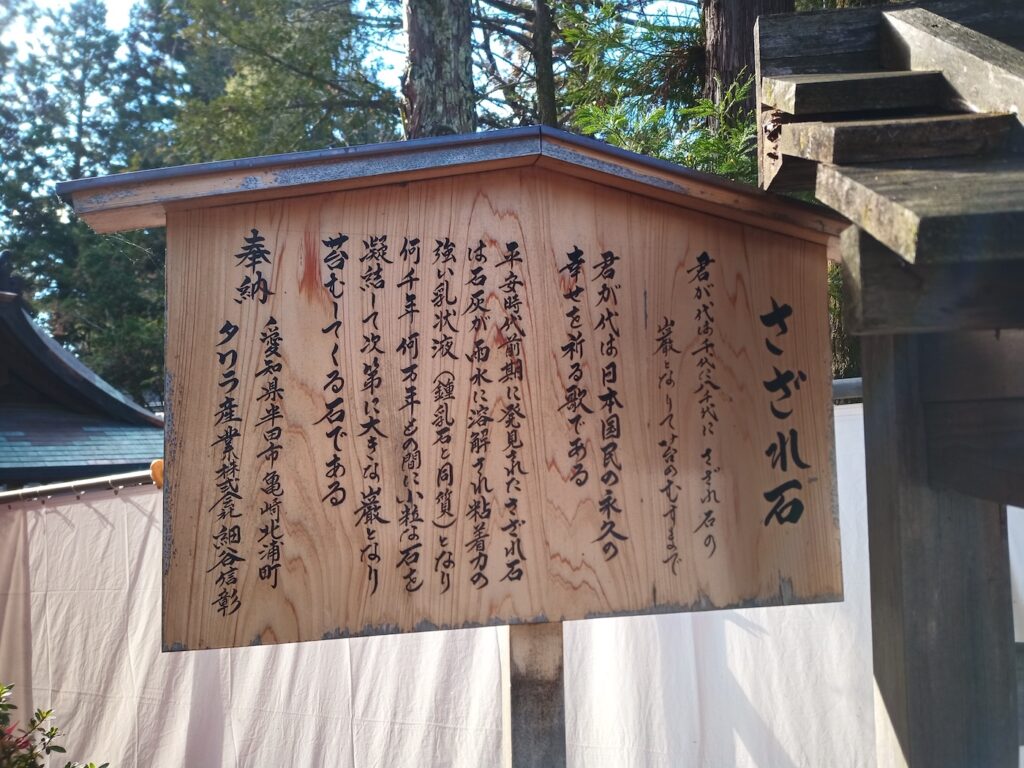 さざれ石
君が代は千代に八千代に さざれ石の
巌となりて苔のむすまで
君が代は日本国民の永久の
幸せを祈る歌である
平安時代前期に発見されたさざれ石
は石灰が雨水に溶解され粘着力の
強い乳状液(鍾乳石と同質)となり
何千年 何万年との間に小粒な石を
凝結して次第に大きな巌となり
苔むしてくる石である
奉納
愛知県半田市亀崎北浦町
タワラ産業株式会社 細谷信彰